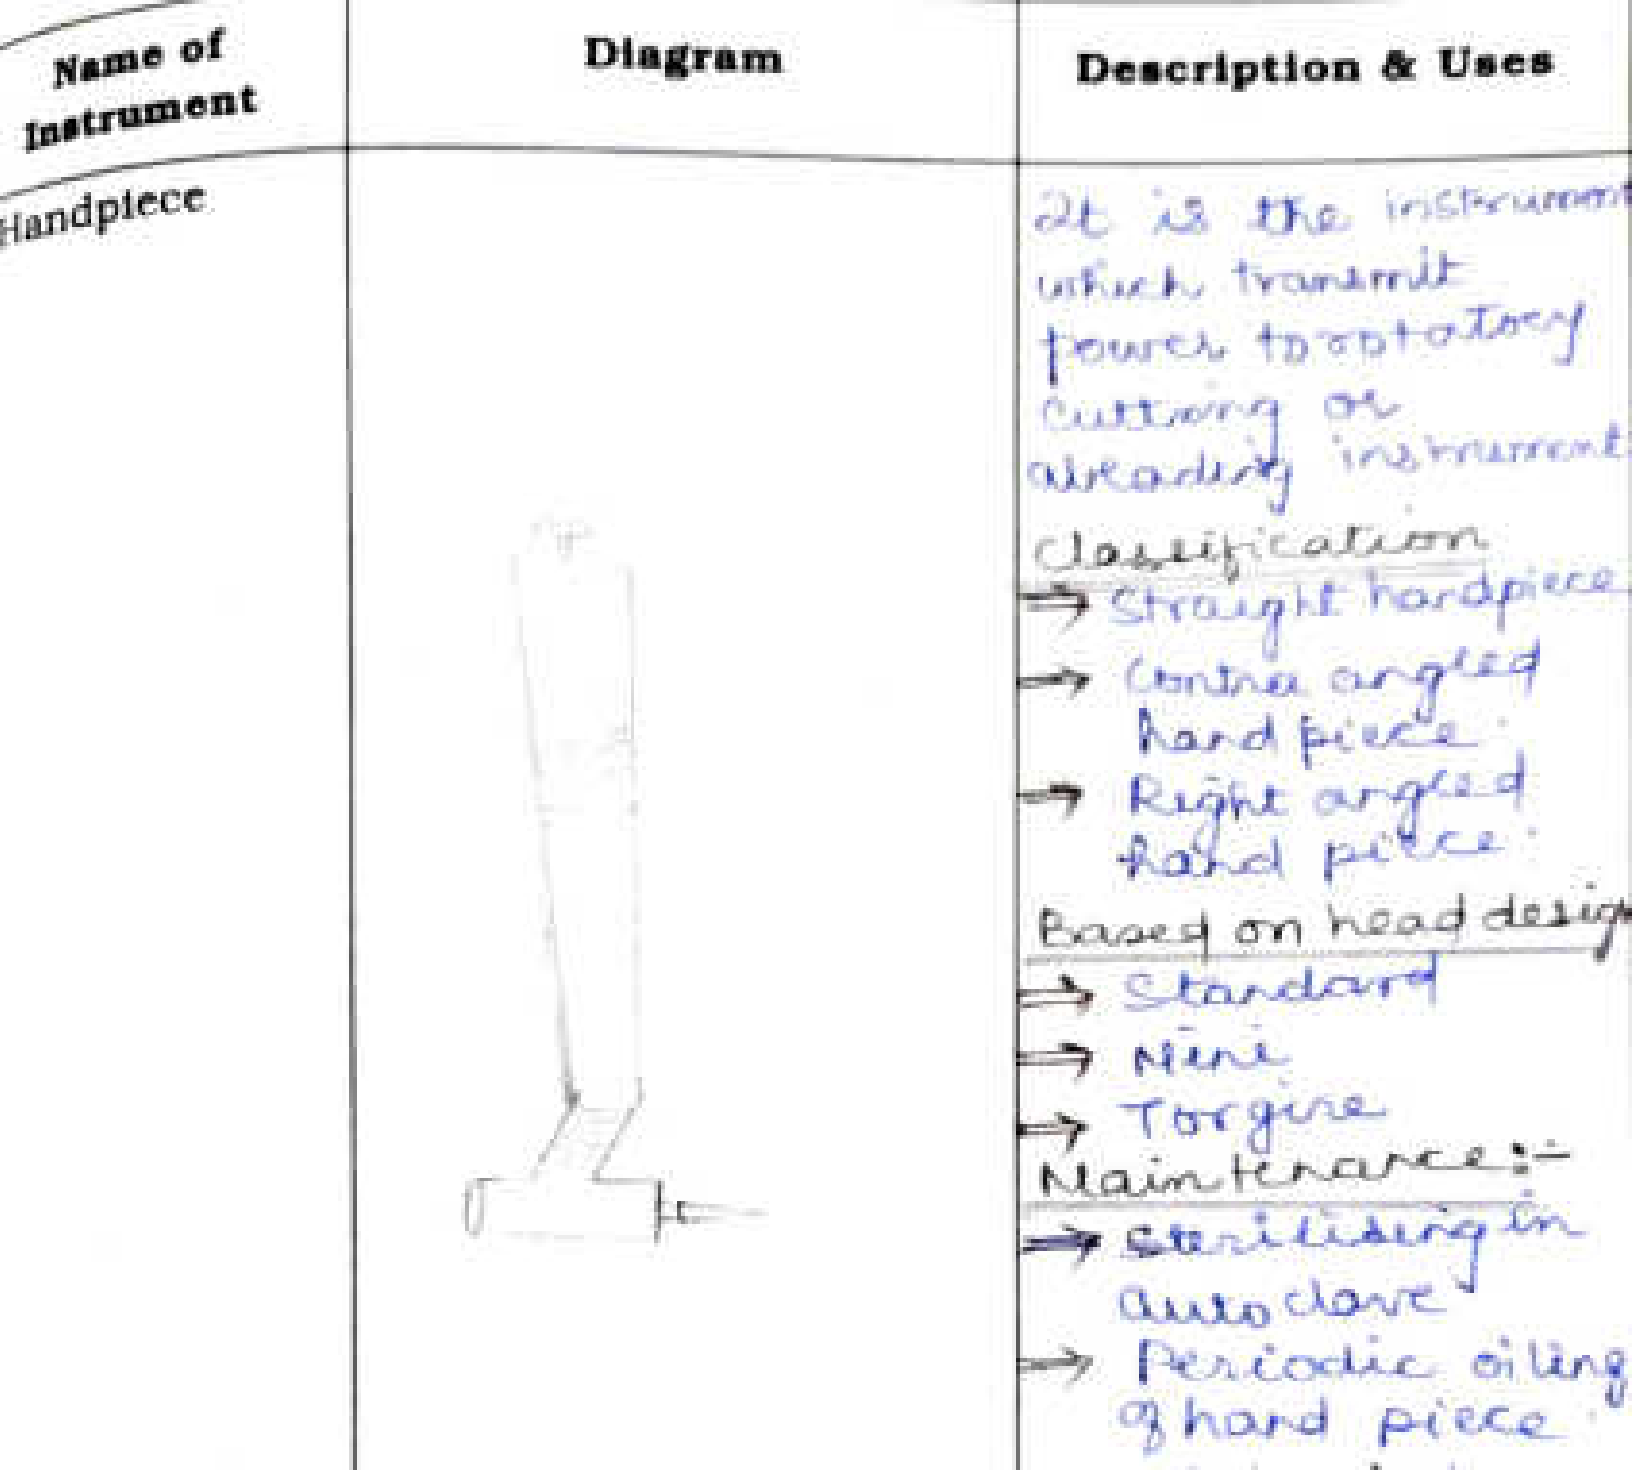 Name of
Instrument
Diagram
Description & Uses
Handpiece
It is the instrument
which transmit
power to rotatory
cutting or
instrument
Classification
⇒ Straight handpiece
→ Contra angled
hand piece.
→ Right angled
hand piece.
Based on head design
⇒ Standard
⇒ Mini
⇒ Torqine
Maintenance :-
⇒ Sterilising in
autoclave
→ Periodic oiling
of hand piece.